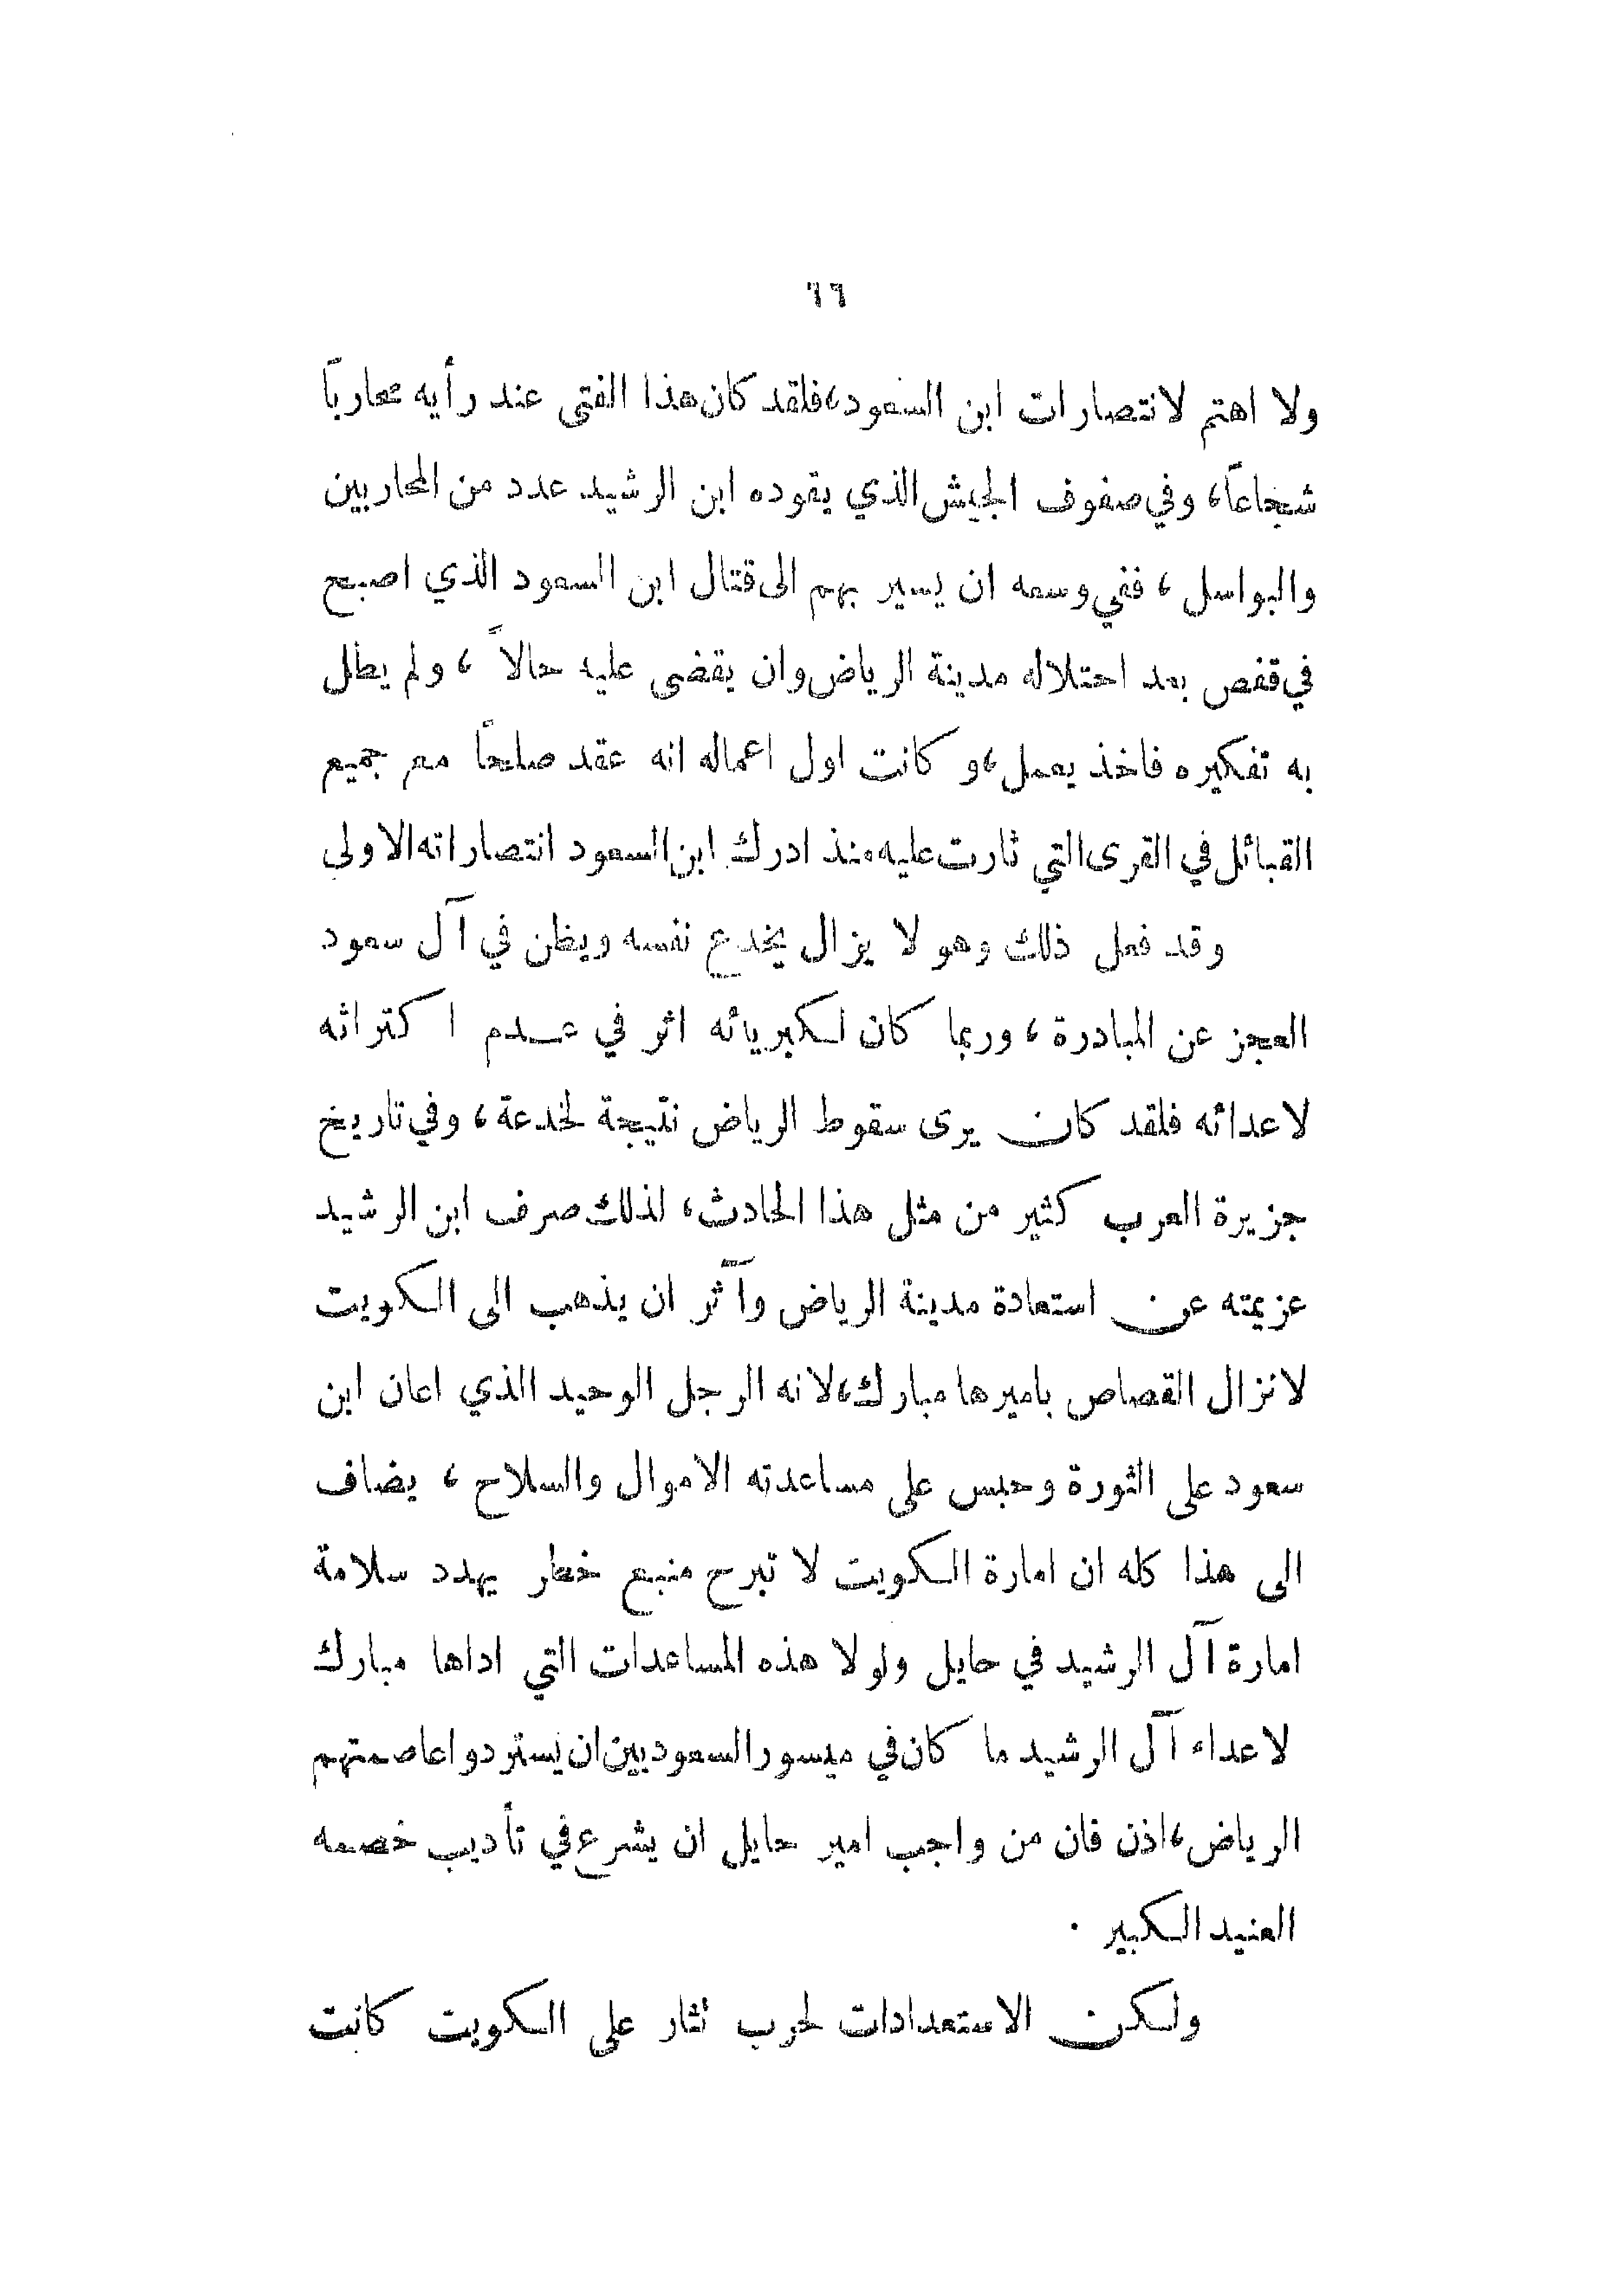 ٦٦
ولا اهتم لانتصارات ابن السعود، فلقد كان هذا الفتى عند رأيه محارباً
شجاعاً، وفي صفوف الجيش الذي يقوده ابن الرشيد عدد من المحاربين
والبواسل، ففي وسعه ان يسير بهم الى قتال ابن السعود الذي اصبح
في قفص بعد احتلاله مدينة الرياض وان يقضى عليه حالاً، ولم يطل
به تفكيره فاخذ يعمل، وكانت اول اعماله انه عقد صلحاً مع جميع
القبائل في القرى التي ثارت عليه منذ ادرك ابن السعود انتصاراته الاولى
وقد فعل ذلك وهو لا يزال يخدع نفسه ويظن في آل سعود
العجز عن المبادرة، وربما كان لكبريائه اثر في عدم اكتراثه
لاعدائه فلقد كان يرى سقوط الرياض نتيجة لخدعة، وفي تاريخ
جزيرة العرب كثير من مثل هذا الحادث، لذلك صرف ابن الرشيد
عزيمته عن استعادة مدينة الرياض وآثر ان يذهب الى الكويت
لانزال القصاص باميرها مبارك، لانه الرجل الوحيد الذي اعان ابن
سعود على الثورة وحبس على مساعدته الاموال والسلاح، يضاف
الى هذا كله ان امارة الكويت لا تبرح منبع خطر يهدد سلامة
امارة آل الرشيد في حايل ولولا هذه المساعدات التي اداها مبارك
لاعداء آل الرشيد ما كان في ميسور السعوديين ان يستردوا عاصمتهم
الرياض، اذن فان من واجب امير حايل ان يشرع في تأديب خصمه
العنيد الكبير .
ولكن الاستعدادات لحرب تثار على الكويت كانت